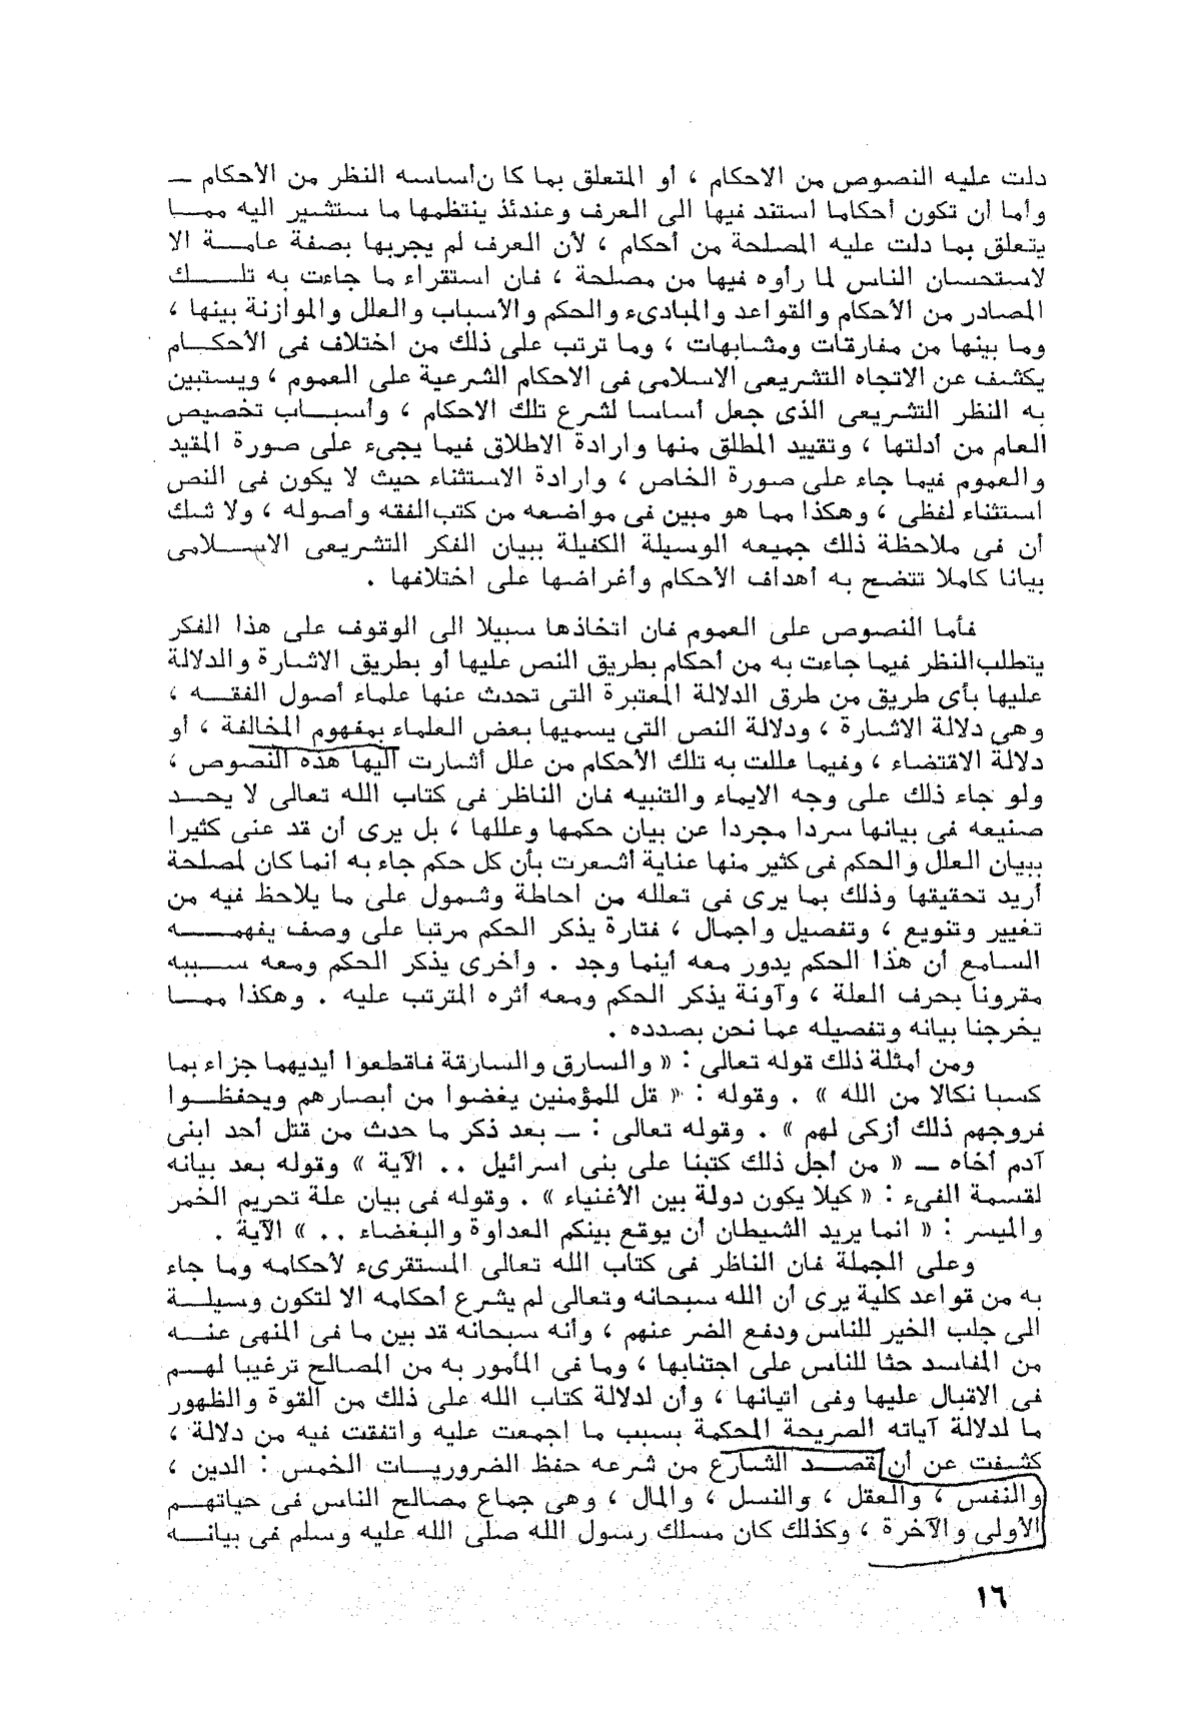 دلت عليه النصوص من الاحكام ، أو المتعلق بما كا نأساسه النظر من الأحكام —
وأما أن تكون أحكاما استند فيها الى العرف وعندئذ ينتظمها ما ستشير اليه ممــا
يتعلق بما دلت عليه المصلحة من أحكام ، لأن العرف لم يجربها بصفة عامــة الا
لاستحسان الناس لما رأوه فيها من مصلحة ، فان استقراء ما جاءت به تلــــك
المصادر من الأحكام والقواعد والمبادىء والحكم والأسباب والعلل والموازنة بينها ،
وما بينها من مفارقات ومشابهات ، وما ترتب على ذلك من اختلاف فى الأحكــام
يكشف عن الاتجاه التشريعى الاسلامى فى الاحكام الشرعية على العموم ، ويستبين
به النظر التشريعى الذى جعل أساسا لشرع تلك الاحكام ، وأسبــاب تخصيص
العام من أدلتها ، وتقييد المطلق منها وارادة الاطلاق فيما يجىء على صورة المقيد
والعموم فيما جاء على صورة الخاص ، وارادة الاستثناء حيث لا يكون فى النص
استثناء لفظى ، وهكذا مما هو مبين فى مواضعه من كتب الفقه وأصوله ، ولا شك
أن فى ملاحظة ذلك جميعه الوسيلة الكفيلة ببيان الفكر التشريعى الاســلامى
بيانا كاملا تتضح به أهداف الأحكام وأغراضها على اختلافها .
فأما النصوص على العموم فان اتخاذها سبيلا الى الوقوف على هذا الفكر
يتطلب النظر فيما جاءت به من أحكام بطريق النص عليها أو بطريق الاشارة والدلالة
عليها بأى طريق من طرق الدلالة المعتبرة التى تحدث عنها علماء أصول الفقــه ،
وهى دلالة الاشارة ، ودلالة النص التى يسميها بعض العلماء بمفهوم المخالفة ، أو
دلالة الاقتضاء ، وفيما عللت به تلك الأحكام من علل أشارت اليها هذه النصوص ،
ولو جاء ذلك على وجه الايماء والتنبيه فان الناظر فى كتاب الله تعالى لا يحــد
صنيعه فى بيانها سردا مجردا عن بيان حكمها وعللها ، بل يرى أن قد عنى كثيرا
ببيان العلل والحكم فى كثير منها عناية أشعرت بأن كل حكم جاء به انما كان لمصلحة
أريد تحقيقها وذلك بما يرى فى تعلله من احاطة وشمول على ما يلاحظ فيه من
تغيير وتنويع ، وتفصيل واجمال ، فتارة يذكر الحكم مرتبا على وصف يفهمــــه
السامع أن هذا الحكم يدور معه أينما وجد . وأخرى يذكر الحكم ومعه ســببه
مقرونا بحرف العلة ، وآونة يذكر الحكم ومعه أثره المترتب عليه . وهكذا ممــا
يخرجنا بيانه وتفصيله عما نحن بصدده .
ومن أمثلة ذلك قوله تعالى : « والسارق والسارقة فاقطعوا أيديهما جزاء بما
كسبا نكالا من الله » . وقوله : « قل للمؤمنين يغضوا من أبصارهم ويحفظــوا
فروجهم ذلك أزكى لهم » . وقوله تعالى : — بعد ذكر ما حدث من قتل أحد ابنى
آدم أخاه — « من أجل ذلك كتبنا على بنى اسرائيل .. الآية » وقوله بعد بيانه
لقسمة الفىء : « كيلا يكون دولة بين الأغنياء » . وقوله فى بيان علة تحريم الخمر
والميسر : « انما يريد الشيطان أن يوقع بينكم العداوة والبغضاء .. » الآية .
وعلى الجملة فان الناظر فى كتاب الله تعالى المستقرىء لأحكامه وما جاء
به من قواعد كلية يرى أن الله سبحانه وتعالى لم يشرع أحكامه الا لتكون وسيلــة
الى جلب الخير للناس ودفع الضر عنهم ، وأنه سبحانه قد بين ما فى المنهى عنــه
من المفاسد حثا للناس على اجتنابها ، وما فى المأمور به من المصالح ترغيبا لهــم
فى الاقبال عليها وفى اتيانها ، وأن لدلالة كتاب الله على ذلك من القوة والظهور
ما لدلالة آياته الصريحة المحكمة بسبب ما اجمعت عليه واتفقت فيه من دلالة ،
كشفت عن أن قصــد الشارع من شرعه حفظ الضروريــات الخمس : الدين ،
والنفس ، والعقل ، والنسل ، والمال ، وهى جماع مصالح الناس فى حياتهــم
الأولى والآخرة ، وكذلك كان مسلك رسول الله صلى الله عليه وسلم فى بيانــه
١٦